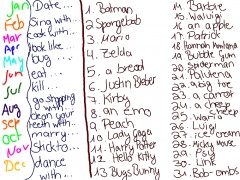 Jan Date...
Feb Sing with...
Mar Cook with...
Apr look like...
May hug...
Jun eat...
Jul kill...
Aug go shopping with...
Sep clean your teeth with...
Oct marry...
Nov Stick to...
Dec dance with...
1. Batman
2. Spongebob
3. Mario
4. Zelda
5. a bread
6. Justin Bieber
7. Kirby
8. an Emo
9. Peach
10. Lady Gaga
11. Harry Potter
12. Hello Kitty
13. Bugs Bunny
14. Barbie
15. Waluigi
16. an apple
17. Patrick
18. Hannah Montana
19. Bubble Gum
20. Spiderman
21. Palutena
22. a big toe
23. a carrot
24. a cheep cheep
25. Wario
26. Luigi
27. ice cream
28. Micky Mouse
29. Psy
30. Link
31. Bob-ombs